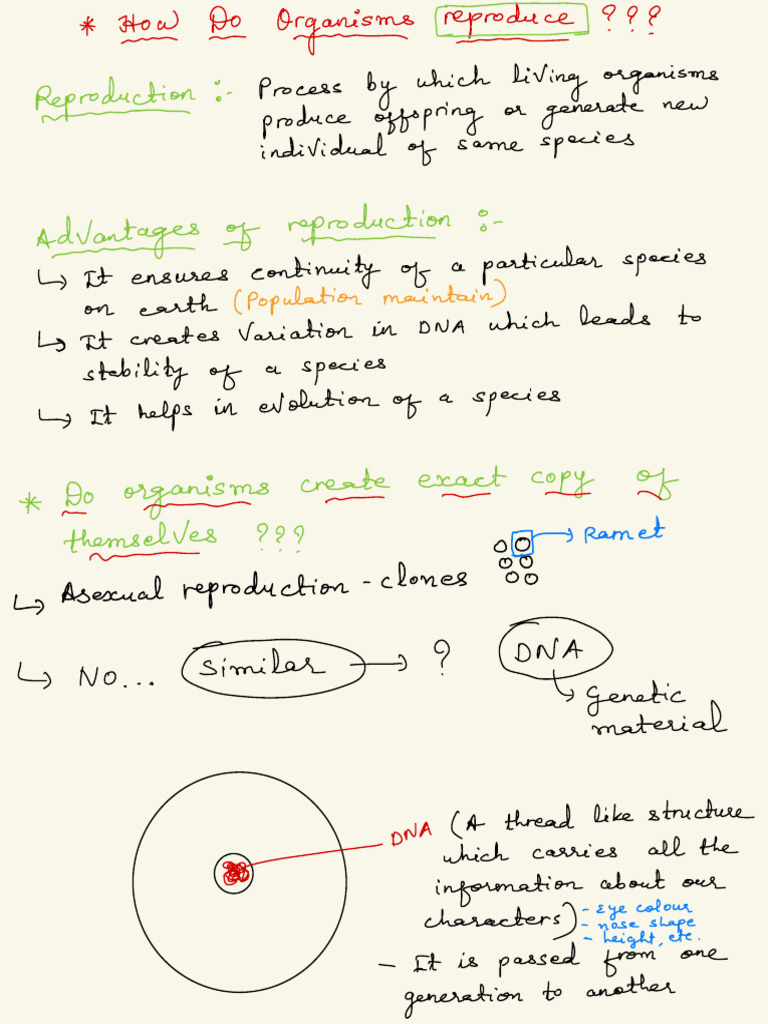 * How Do Organisms reproduce ???
Reproduction :- Process by which living organisms
produce offspring or generate new
individual of same species
Advantages of reproduction :-
↳ It ensures continuity of a particular species
on earth (Population maintain)
↳ It creates variation in DNA which leads to
stability of a species
↳ It helps in evolution of a species
* Do organisms create exact copy of
themselves ???
→ Ramet
↳ Asexual reproduction - clones
↳ No... Similar → ? DNA
↳ Genetic
material
DNA (A thread like structure
which carries all the
information about our
characters)
- Eye colour
- nose shape
- height, etc.
- It is passed from one
generation to another